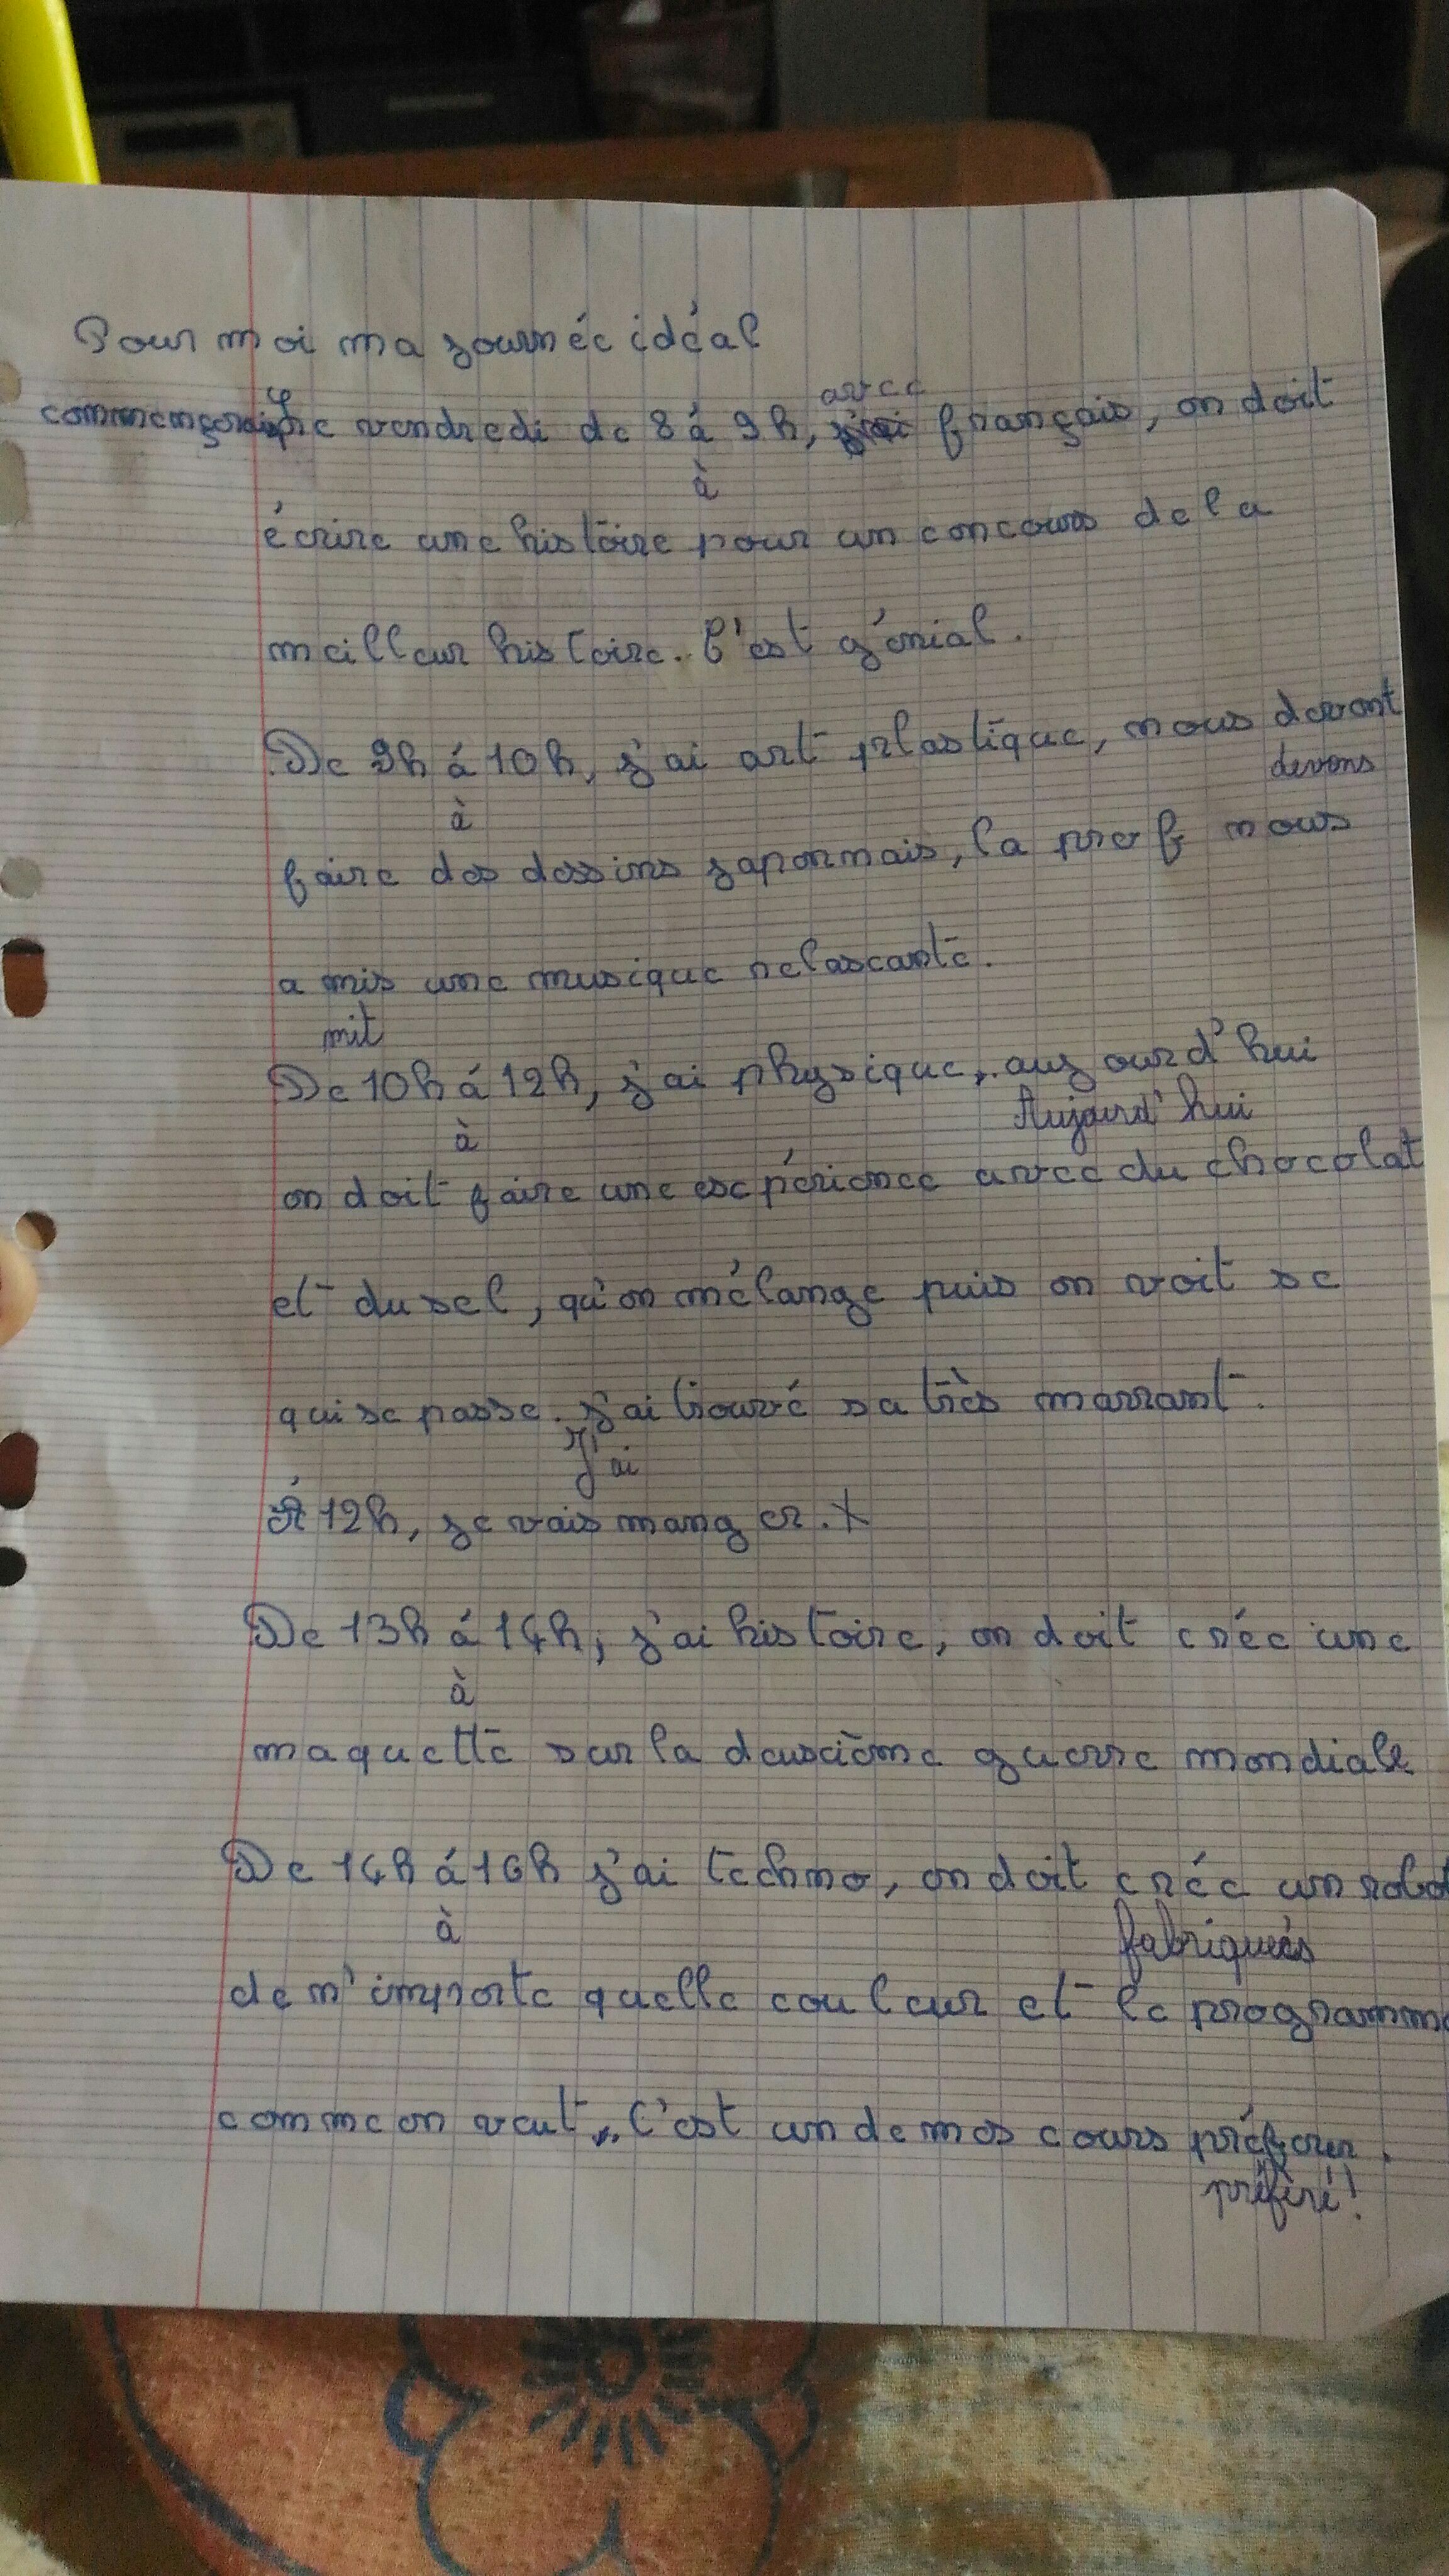 Pour moi ma journée idéal
avec
commençerai le vendredi de 8 á 9h, français, on doit
à
écrire une histoire pour un concours de la
meilleur histoire. C'est génial.
De 9h á 10h, j'ai art plastique, nous devont
devons
à
faire des dessins japonnais, la prof nous
a mis une musique relascante.
mit
De 10h á 12h, j'ai physique, aujourd'hui
Aujourd'hui
à
on doit faire une expérience avec du chocolat
et du sel, qu'on mélange puis on voit se
qui se passe. j'ai trouvé sa très marrant.
J'ai
Á 12h, je vais manger.
De 13h á 14h, j'ai histoire, on doit créé une
à
maquette sur la deuxième guerre mondiale
De 14h á 16h j'ai techno, on doit créé un robot
à
fabriqués
de n'importe quelle couleur et le programme
comme on veut. C'est un de mos cours préférer.
préféré!